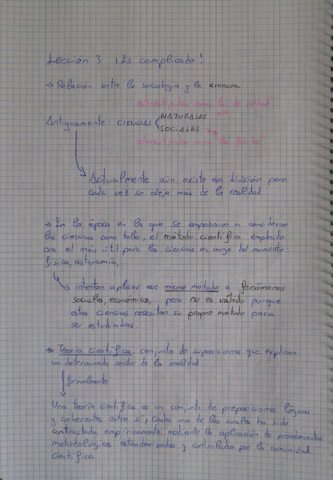 Lección 3 ¡Es complicado!
→ Relación entre la sociología y la ciencia.
Antiguamente: CIENCIAS NATURALES
SOCIALES
Actualmente aún existe esa división pero
cada vez se aleja más de la realidad.
→ En la época en la que se empezaron a considerar
las ciencias como tales, el método científico empleado
era el más útil para las ciencias en auge del momento:
física, astronomía,
intentan aplicar ese mismo método a fenómenos
sociales, económicos, pero no es válido porque
estas ciencias necesitan su propio método para
ser estudiadas.
→ Teoría científica: conjunto de suposiciones que explican
un determinado sector de la realidad.
formalmente
Una teoría científica es un conjunto de proposiciones lógicas
y coherentes entre sí, cada una de las cuales ha sido
contrastada empíricamente mediante la aplicación de procedimientos
metodológicos estandarizados y controlados por la comunidad
científica.